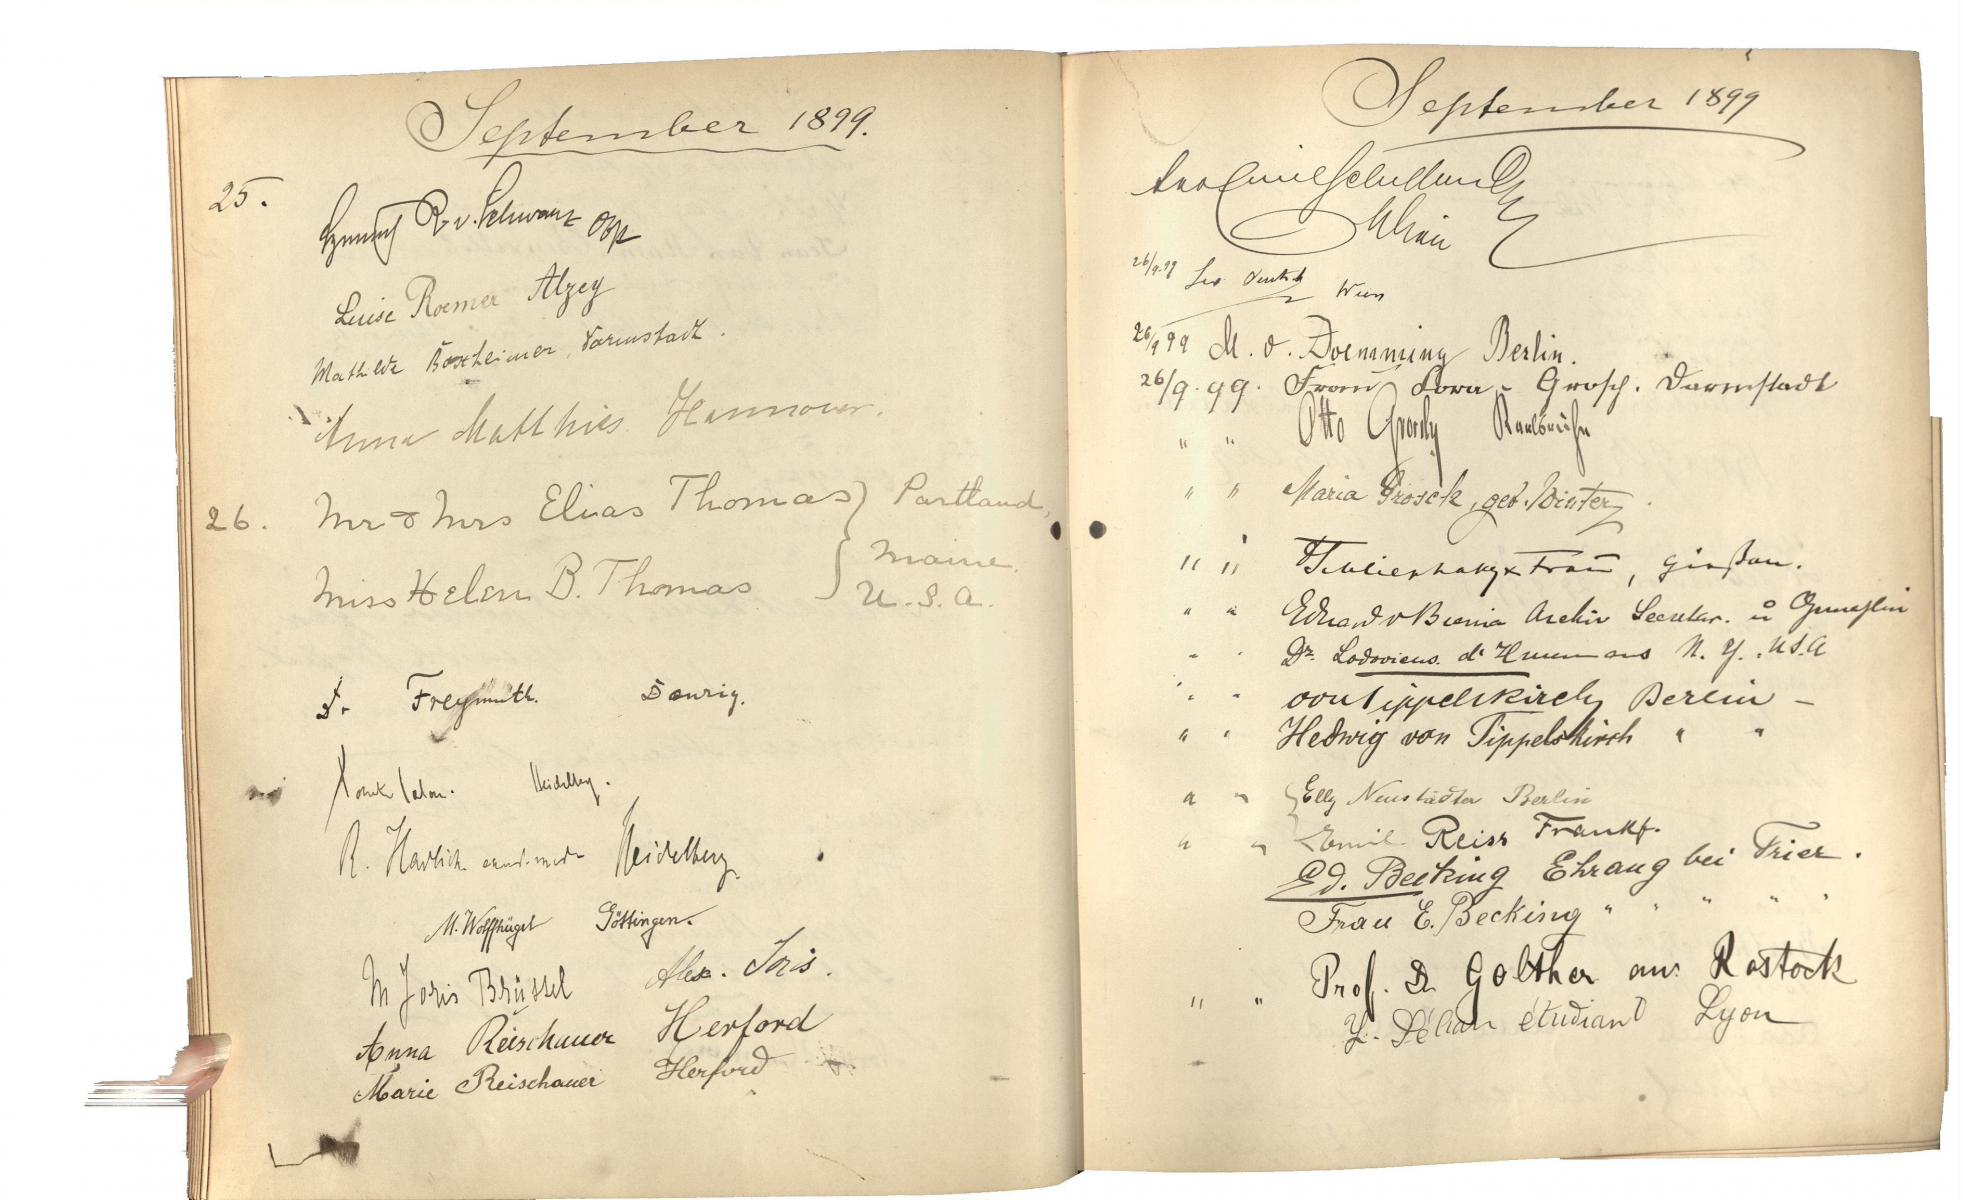 September 1899.
25.
R. v. Schwarz
Luise Roemer Alzey
Mathilde Boxheimer, Darmstadt.
Anna Matthies. Hannover.
26. Mr & Mrs Elias Thomas } Portland,
Maine.
Miss Helen B. Thomas U.S.A.
Dr Freymuth. Danzig.
Heidelberg.
R. Havlich cand. med. Heidelberg.
M. Wolffhügel Göttingen.
M Joris Brüssel Alex. Joris.
Anna Reischauer Herford
Marie Reischauer Herford
September 1899
Wien
26/9.99 Leo Wien
26/9 99 M. v. Doemming Berlin.
26/9.99. Frau Grosch. Darmstadt
" " Otto Karlsruhe
" " Maria Grosch, geb. Winter.
" " & Frau, Gießen.
" " Eduard v Archiv Secretär. u
" " Dr. Lodovicus d' N. Y. U.S.A
" " von Tippelskirch Berlin –
" " Hedwig von Tippelskirch " "
" " { Elly Neustädter Berlin
" " Emil Reiss Frankf.
Ed. Becking Ehrang bei Trier.
Frau E. Becking " " " " "
" " Prof. Dr Golther aus Rostock
étudiant Lyon